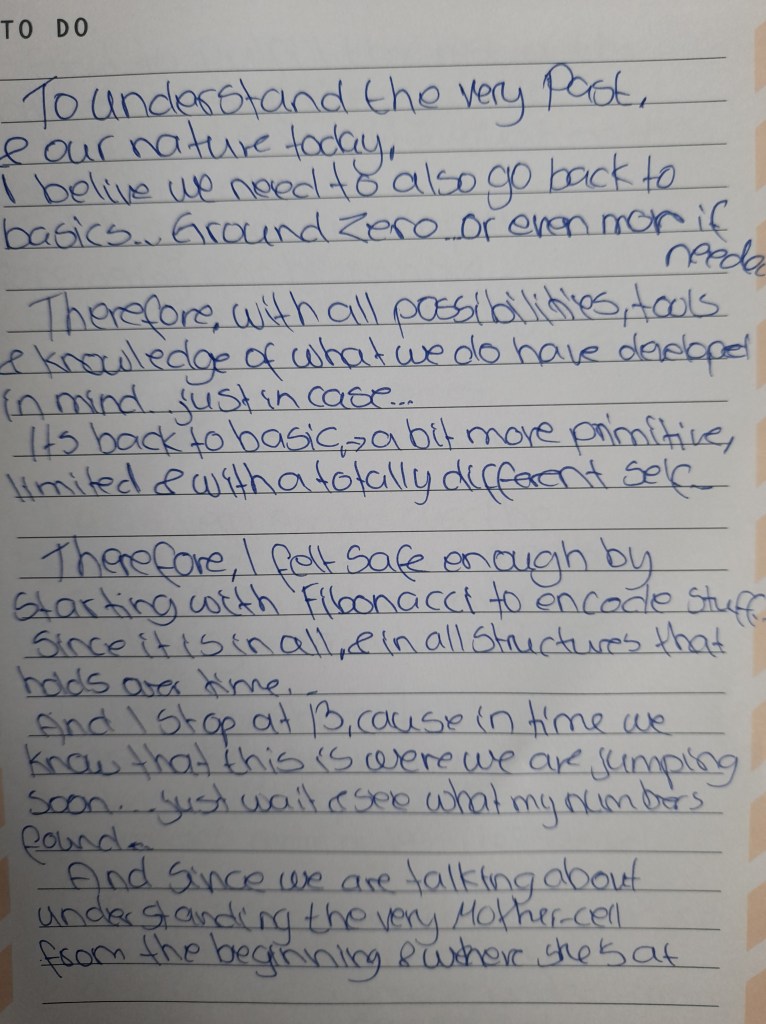 TO DO
To understand the very Past,
& our nature today,
I belive we need to also go back to
basics... Ground Zero.. or even mor if
neede
Therefore, with all possibilities, tools
& knowledge of what we do have developed
in mind.. just in case...
Its back to basic, → a bit more primitive,
limited & with a totally different self_
Therefore, I felt safe enough by
starting with Fibonacci to encode stuff.
Since it is in all, & in all structures that
holds over time._
And I stop at 13, cause in time we
know that this is were we are jumping
soon... just wait & see what my numbers
found_
And since we are talking about
understanding the very Mother-cell
from the beginning & where she's at